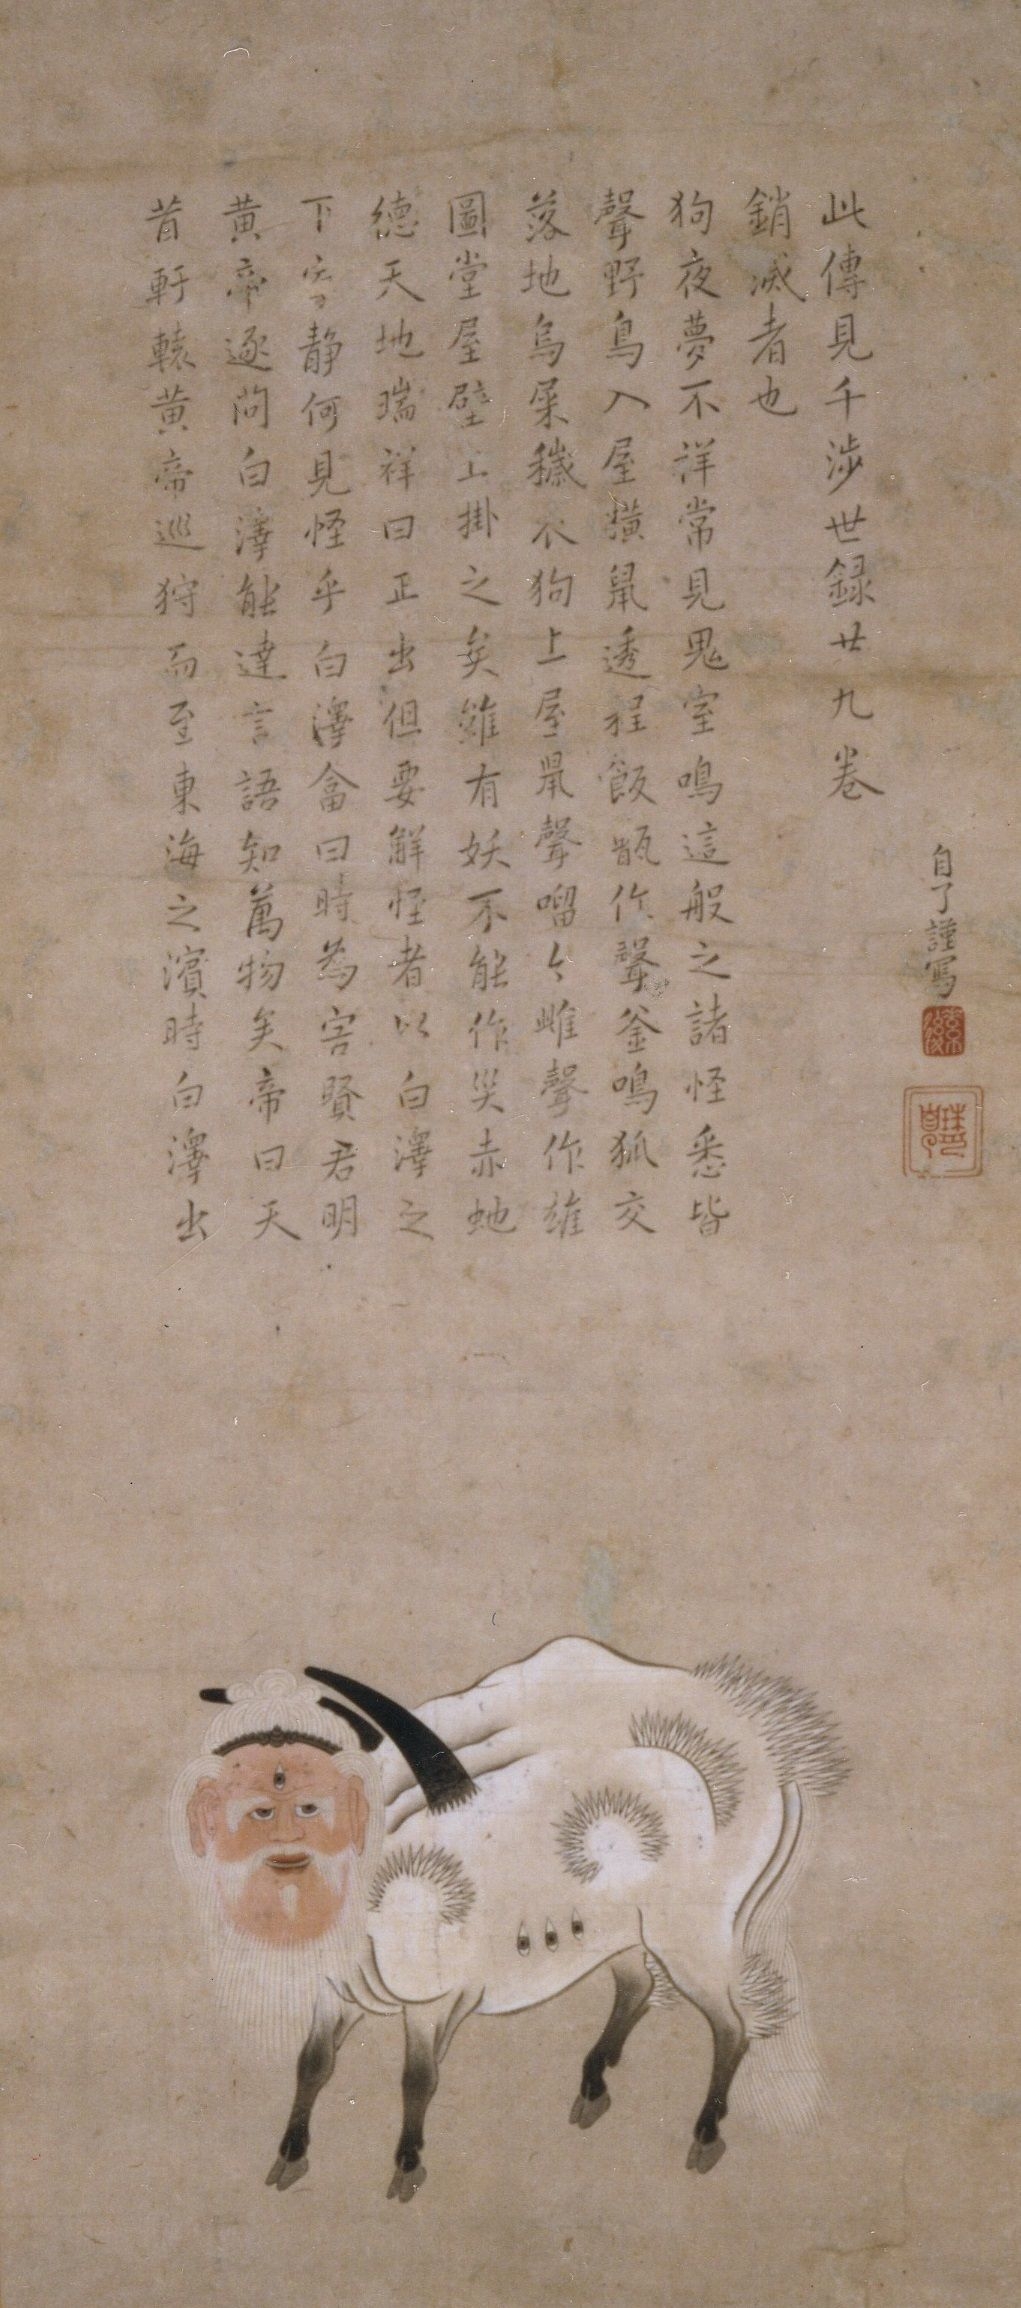 昔軒轅黄帝巡狩而至東海之濱時白澤出
黄帝逐問白澤能達言語知萬物矣帝曰天
下静何見怪乎白澤畣曰時為害賢君明
德天地瑞祥曰正出但要解怪者以白澤之
圖堂屋壁上掛之矣雖有妖不能作災赤虵
落地鳥屎穢衣狗上屋鼠聲嚠々雌聲作雄
聲野鳥入屋獚鼠透程飯甑作聲釜鳴狐交
狗夜夢不祥常見鬼室鳴這般之諸怪悉皆
銷滅者也
此傳見千涉世録廿九卷
自了謹寫